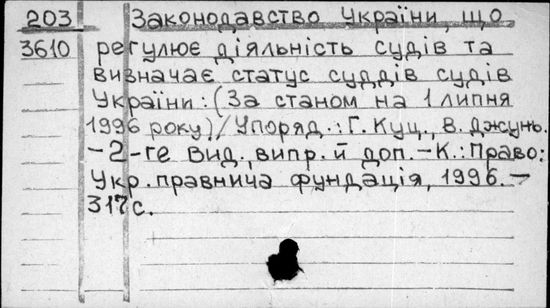 203 Законодавство України, що
3610 регулює діяльність судів та
визначає статус суддів судів
України: (За станом на 1 липня
1996 року) / Упоряд.: Г. Куц, В. Джунь.
- 2-ге вид., випр. й доп. - К.: Право:
Укр. правнича фундація, 1996. -
317 с.